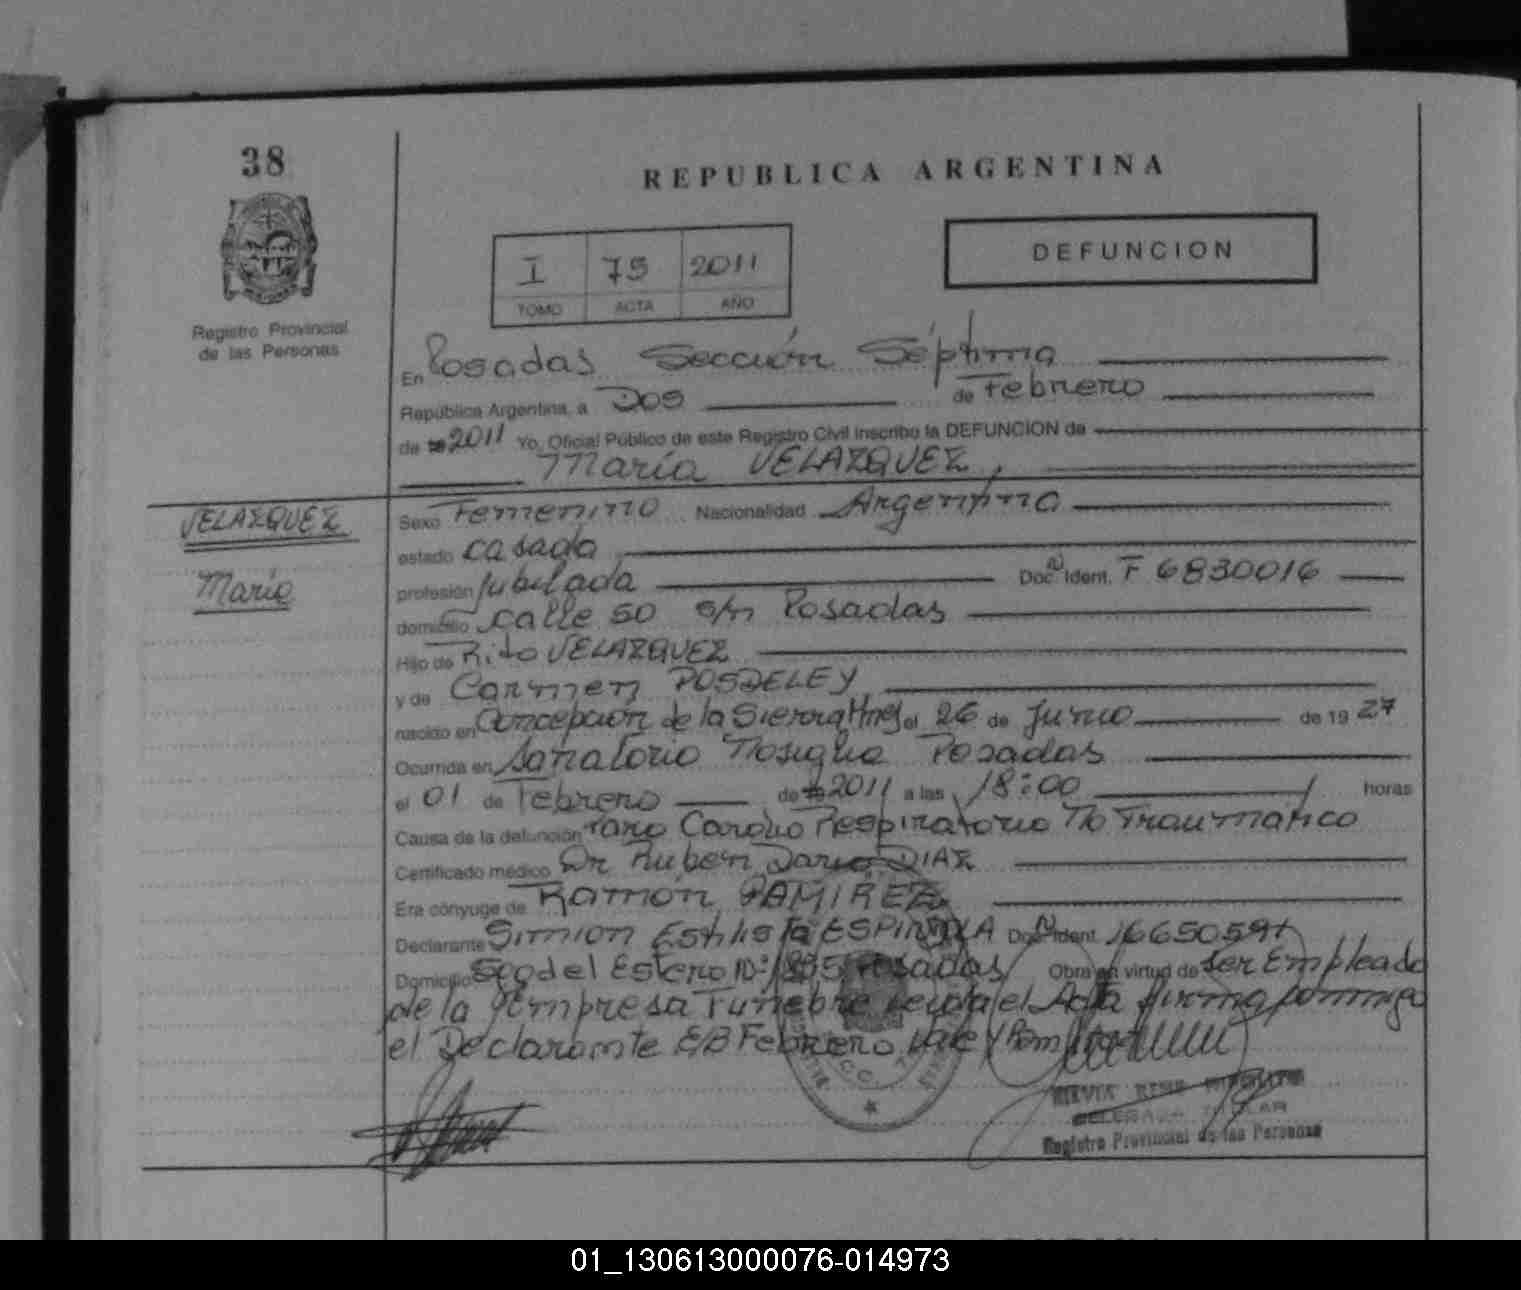 38
REPUBLICA ARGENTINA
Registro Provincial
de las Personas
I 75 2011
TOMO ACTA AÑO
DEFUNCION
En Posadas Sección Séptima
República Argentina, a Dos de Febrero
de 2011 Yo, Oficial Público de este Registro Civil inscribo la DEFUNCION de
María VELAZQUEZ,
VELAZQUEZ
María
Sexo Femenino Nacionalidad Argentina
estado casada
profesión jubilada Doc. Ident. F 6830016
domicilio calle 50 s/n Posadas
Hijo de Rito VELAZQUEZ
y de Carmen POSDELEY
nacido en Concepción de la Sierra Mnes el 26 de Junio de 19 27
Ocurrida en Sanatorio Nosiglia Posadas
el 01 de Febrero de 2011 a las 18:00 horas
Causa de la defunción Paro Cardio Respiratorio No Traumático
Certificado médico Dr Ruben Dario DIAZ
Era cónyuge de Ramón RAMIREZ
Declarante SIMION Estilista ESPINDOLA Doc. Ident. 16650597
Domicilio Sgo del Estero Nº Posadas Obra en virtud de ser Empleado
de la Empresa Funebre Leída el Acta firma conmigo
el Declarante E/B Febrero Vale
DELEGADA TITULAR
Registro Provincial de las Personas
01_130613000076-014973